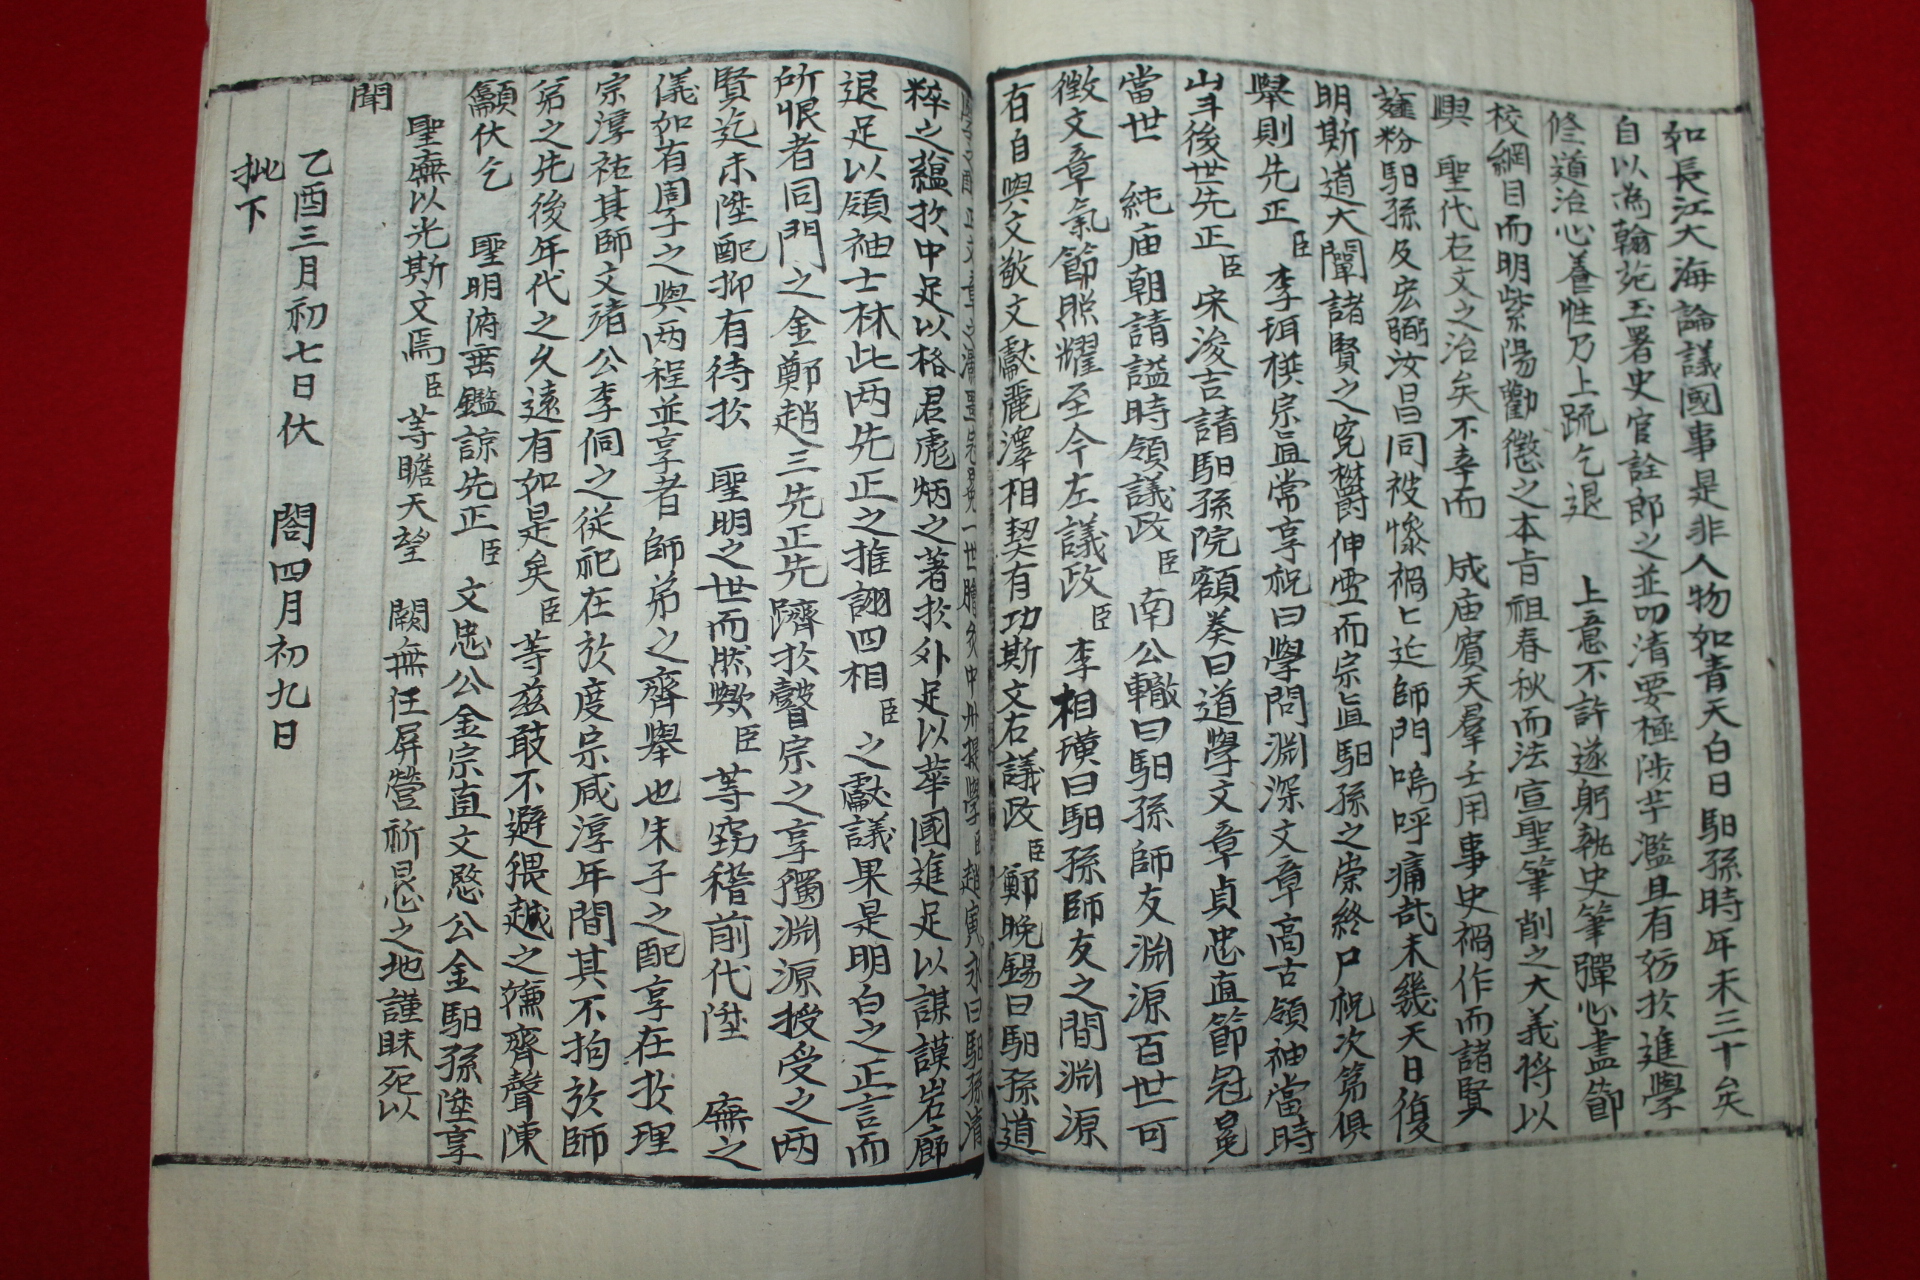 如長江大海論議國事是非人物如青天白日馹孫時年未三十矣
自以為翰苑玉署史官詮郎之並叨清要極涉芋濫且有妨於進學
修道治心養性乃上疏乞退 上意不許遂躬執史筆彈心盡節
校綱目而明紫陽勸懲之本旨祖春秋而法宣聖筆削之大義將以
興 聖代右文之治矣不幸而 成庙賓天羣壬用事史禍作而諸賢
虀粉馹孫及宏弼汝昌同被慘禍亡延師門嗚呼痛哉未幾天日復
明斯道大闡諸賢之寃欝伸虛而宗直馹孫之崇終尸祝次第俱
舉則先正臣李珥榠宗直常享祝曰學問淵深文章高古領袖當時
山斗後世先正臣宋浚吉請馹孫院額奏曰道學文章貞忠直節冠冕
當世 純庙朝請謚時領議政臣南公轍曰馹孫師友淵源百世可
徵文章氣節照耀至今左議政臣李相璜曰馹孫師友之間淵源
有自與文敬文獻麗澤相契有功斯文右議政臣鄭晩錫曰馹孫道
粹之蘊於中足以格君彪炳之著於外足以華國進足以謀謨岩廊
退足以領袖士林此两先正之推詡四相臣之獻議果是明白之正言而
所恨者同門之金鄭趙三先正先躋於瞽宗之享獨淵源授受之两
賢迄未陞配抑有待於 聖明之世而然歟臣等窃稽前代陞 廡之
儀如有周子之與两程並享者師弟之齊舉也朱子之配享在於理
宗淳祐其師文靖公李侗之從祀在於度宗咸淳年間其不拘於師
弟之先後年代之久遠有如是矣臣等玆敢不避猥越之嫌齊聲陳
龥伏乞 聖明俯垂鑑諒先正臣文忠公金宗直文愍公金馹孫陞享
聖廡以光斯文焉臣等瞻天望 闕無任屏營祈恳之地謹昧死以
聞
乙酉三月初七日伏 閤四月初九日
批下